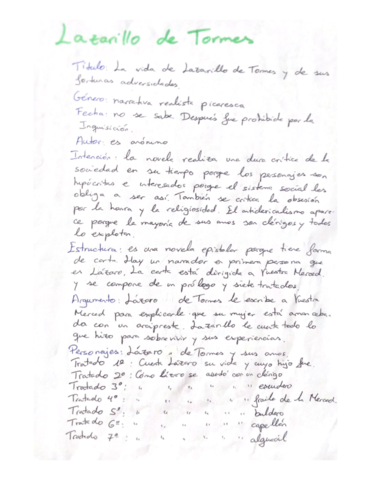 Lazarillo de Tormes
Título: La vida de Lazarillo de Tormes y de sus
fortunas adversidades
Género: narrativa realista picaresca
Fecha: no se sabe. Después fue prohibido por la
Inquisición.
Autor: es anónimo
Intención: la novela realiza una dura crítica de la
sociedad en su tiempo porque los personajes son
hipócritas e interesados porque el sistema social les
obliga a ser así. También se critica la obsesión
por la honra y la religiosidad. El anticlericalismo apare-
ce porque la mayoría de sus amos son clérigos y todos
lo explotan.
Estructura: es una novela epistolar porque tiene forma
de carta. Hay un narrador en primera persona que
es Lázaro. La carta está dirigida a Vuestra Merced
y se compone de un prólogo y siete tratados.
Argumento: Lázaro de Tormes le escribe a Vuestra
Merced para explicarle que su mujer está amanceba-
da con un arcipreste. Lazarillo le cuenta todo lo
que hizo para sobrevivir y sus experiencias.
Personajes: Lázaro de Tormes y sus amos.
Tratado 1º: Cuenta Lázaro su vida y cuyo hijo fue
Tratado 2º: Cómo Lázaro se asentó con un clérigo
Tratado 3º: " " " " " escudero
Tratado 4º: " " " " " fraile de la Merced
Tratado 5º: " " " " " buldero
Tratado 6º: " " " " " capellán
Tratado 7º: " " " " " alguacil